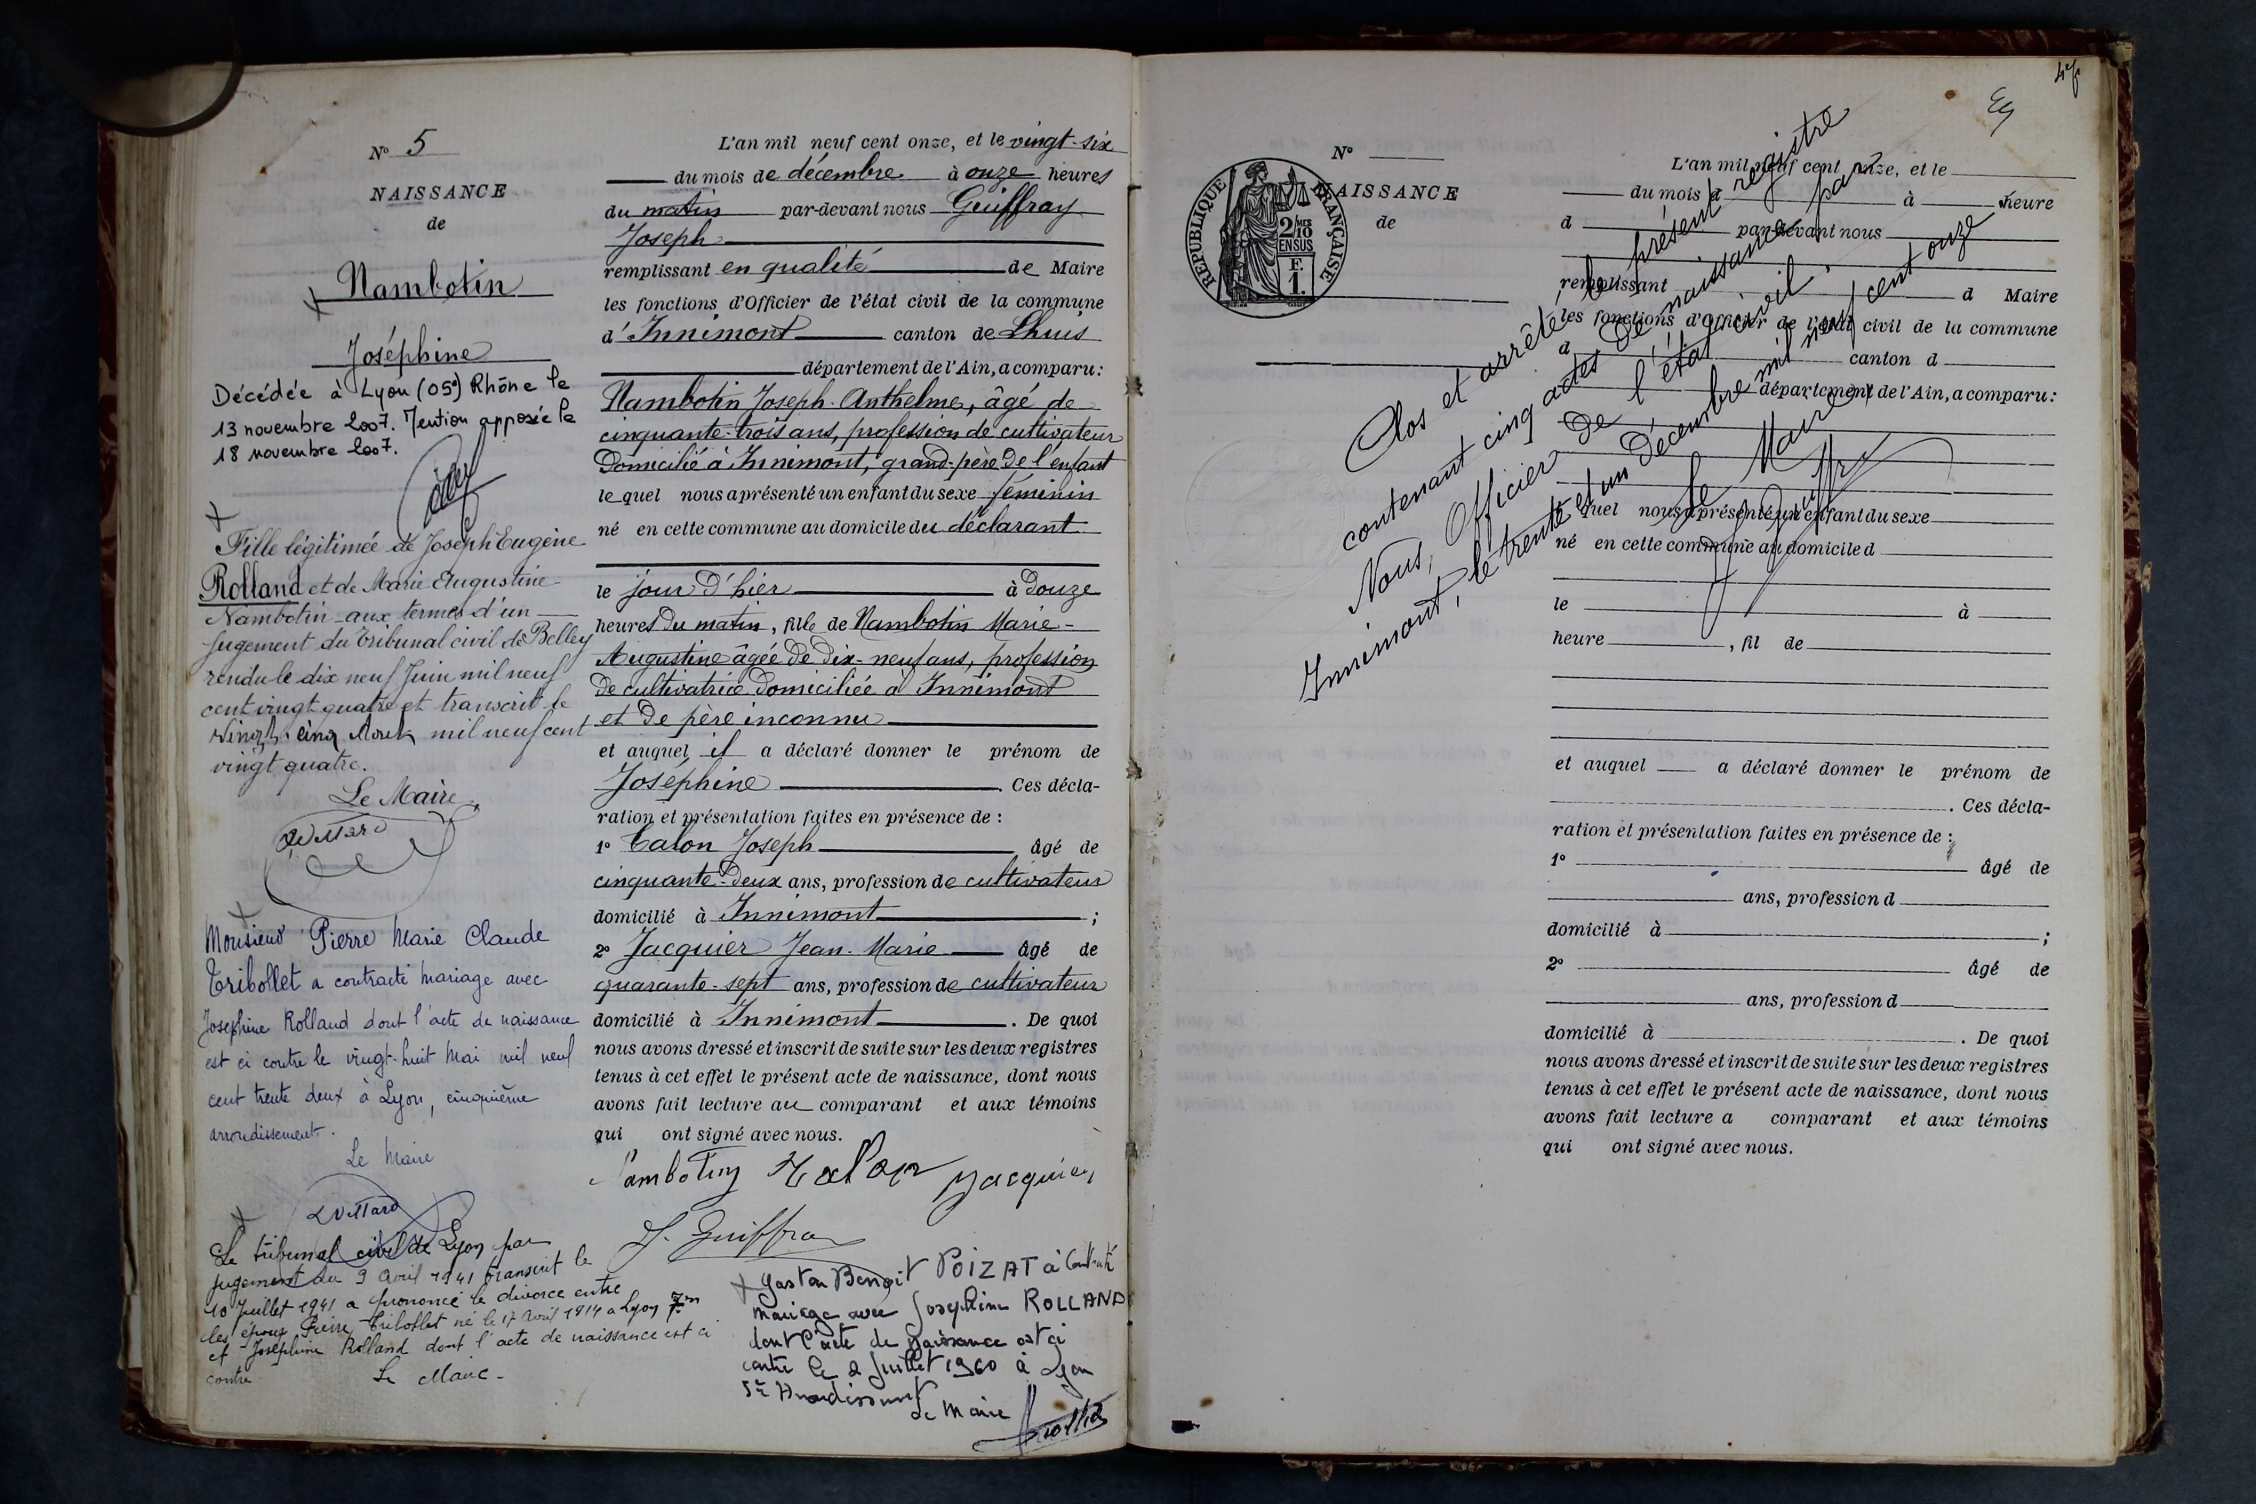 N° 5
NAISSANCE
de
Nambotin
Joséphine
Décédée à Lyon (05e) Rhône le
13 novembre 2007. Mention apposée le
18 novembre 2007.
Fille légitimée de Joseph Eugène
Rolland et de Marie Augustine
Nambotin aux termes d'un
jugement du tribunal civil de Belley
rendu le dix neuf Juin mil neuf
cent vingt quatre et transcrit le
vingt cinq Août mil neuf cent
vingt quatre.
Le Maire
Monsieur Pierre Marie Claude
Tribollet a contracté mariage avec
Joséphine Rolland dont l'acte de naissance
est ci contre le vingt-huit Mai mil neuf
cent trente deux à Lyon, cinquième
arrondissement.
Le Maire
Le tribunal civil de Lyon par
jugement du 9 avril 1941 transcrit le
10 Juillet 1941 a prononcé le divorce entre
les époux Pierre Tribollet né le 17 avril 1914 a Lyon 7m
et Joséphine Rolland dont l'acte de naissance est ci
contre
Le Maire
L'an mil neuf cent onze, et le vingt-six
du mois de décembre à onze heures
du matin par-devant nous Guiffray
Joseph
remplissant en qualité de Maire
les fonctions d'Officier de l'état civil de la commune
d'Innimont canton de Lhuis
département de l'Ain, a comparu:
Nambotin Joseph-Anthelme, âgé de
cinquante-trois ans, profession de cultivateur
domicilié à Innimont, grand-père de l'enfant
le quel nous a présenté un enfant du sexe féminin
né en cette commune au domicile du déclarant
le jour d'hier à douze
heures du matin, fille de Nambotin Marie-
Augustine âgée de dix-neuf ans, profession
de cultivatrice domiciliée à Innimont
et de père inconnu
et auquel il a déclaré donner le prénom de
Joséphine. Ces décla-
ration et présentation faites en présence de :
1° Talon Joseph âgé de
cinquante-deux ans, profession de cultivateur
domicilié à Innimont ;
2° Jacquier Jean-Marie âgé de
quarante-sept ans, profession de cultivateur
domicilié à Innimont. De quoi
nous avons dressé et inscrit de suite sur les deux registres
tenus à cet effet le présent acte de naissance, dont nous
avons fait lecture au comparant et aux témoins
qui ont signé avec nous.
Nambotin Talon Jacquier
J. Guiffray
Gaston Benoit POIZAT à Contracté
mariage avec Josephine ROLLAND
dont l'acte de naissance est ci
contre le 2 Juillet 1960 à Lyon
5e Arrondissement
Le Maire
47
N°
NAISSANCE
de
REPUBLIQUE FRANÇAISE
2/10
EN SUS
F.
1.
L'an mil neuf cent onze, et le
du mois d à heure
d par-devant nous
remplissant d Maire
les fonctions d'Officier de l'état civil de la commune
d canton d
département de l'Ain, a comparu:
le quel nous a présenté un enfant du sexe
né en cette commune au domicile d
le à
heure , fil de
et auquel a déclaré donner le prénom de
. Ces décla-
ration et présentation faites en présence de :
1° âgé de
ans, profession d
domicilié à ;
2° âgé de
ans, profession d
domicilié à . De quoi
nous avons dressé et inscrit de suite sur les deux registres
tenus à cet effet le présent acte de naissance, dont nous
avons fait lecture a comparant et aux témoins
qui ont signé avec nous.
Clos et arrêté, le présent registre
contenant cinq actes de naissance par
Nous, Officier de l'état civil.
Innimont, le trente et un Décembre mil neuf cent onze
Le Maire,
J Guiffray